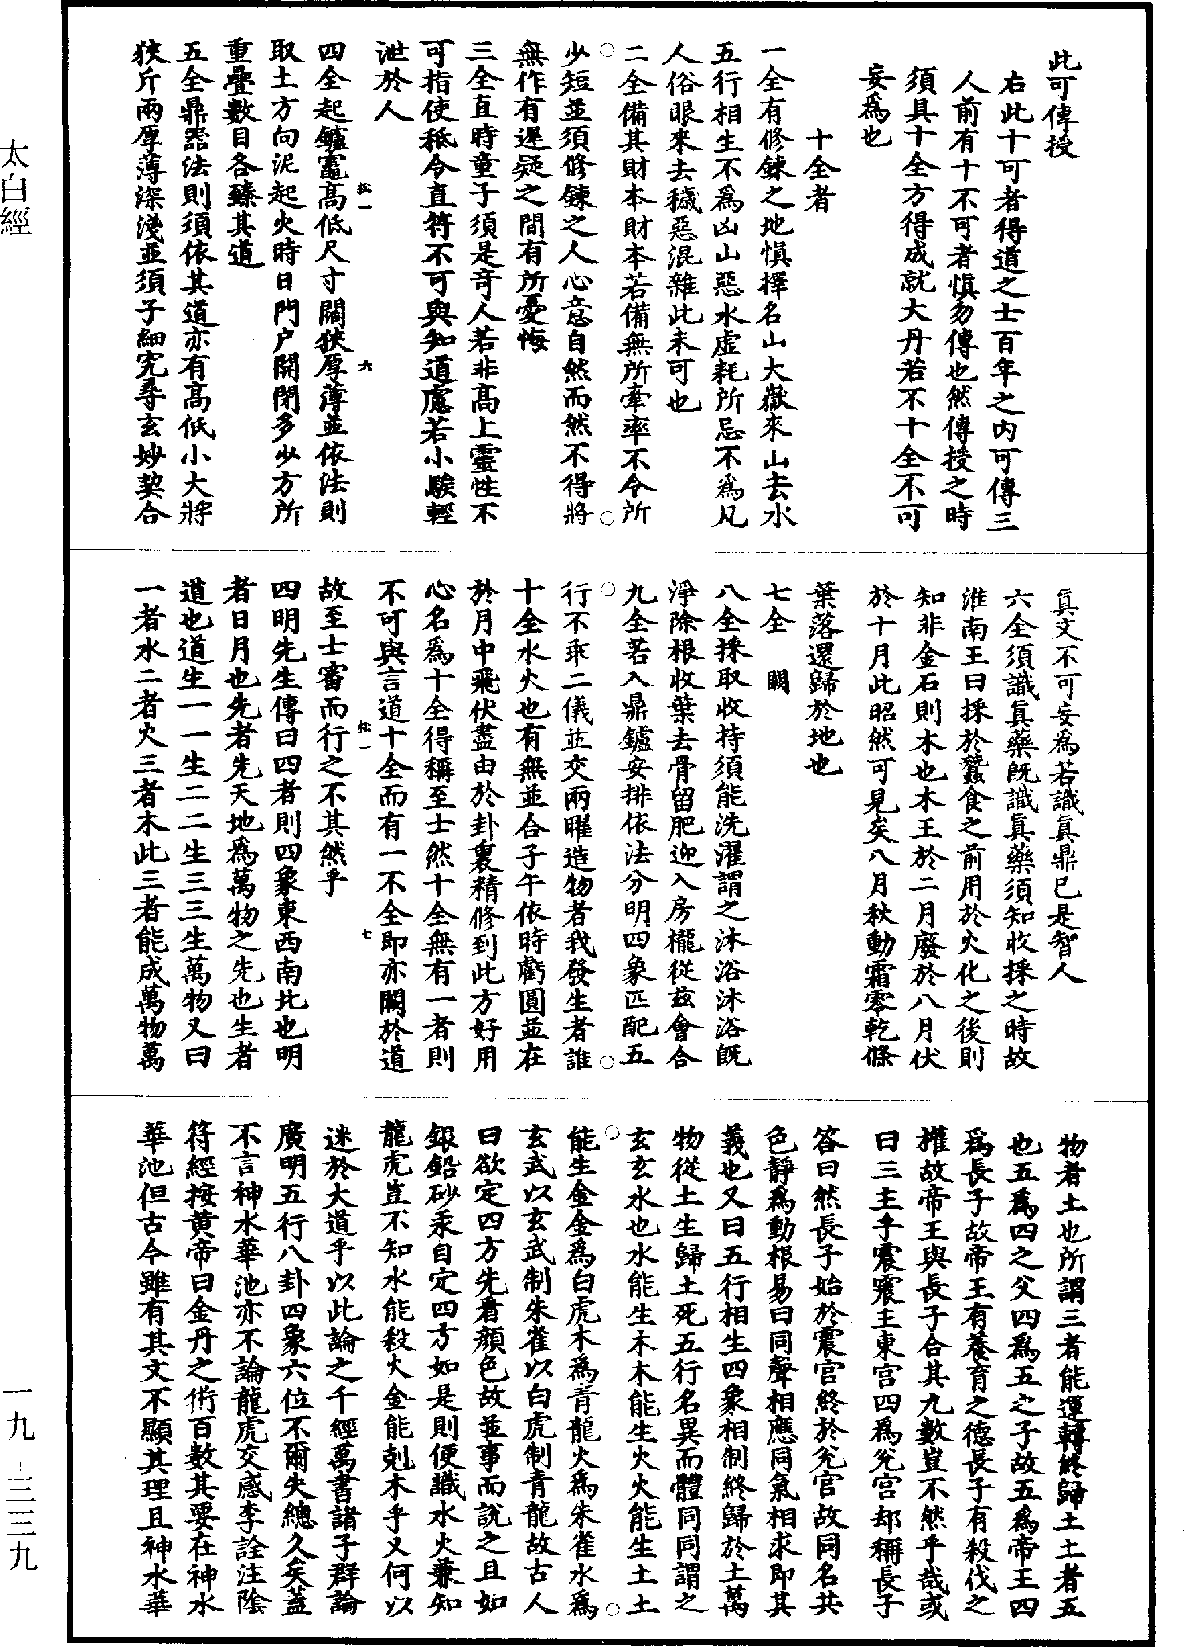 太白經
此可傳授
右此十可者得道之士百年之內可傳三
人前有十不可者慎勿傳也然傳授之時
須具十全方得成就大丹若不十全不可
妄為也
十全者
一全有修鍊之地慎擇名山大嶽來山去水
五行相生不為凶山惡水虛耗所忌不為凡
人俗眼來去穢惡混雜此未可也
二全備其財本財本若備無所牽率不令所
少短並須修鍊之人心意自然而然不得將
無作有遲疑之間有所憂悔
三全直時童子須是奇人若非高上靈性不
可指使秪令直符不可與知道慮若小騃輕
泄於人
四全起鑪竈高低尺寸闊狹厚薄並依法則
取土方向泥起火時日門户開閉多少方所
重疊數目各臻其道
五全鼎器法則須依其道亦有高低小大將
狹斤兩厚薄深淺並須子細究尋玄妙契合
真文不可妄為若識真鼎已是智人
六全須識真藥既識真藥須知收採之時故
淮南王曰採於蠶食之前用於火化之後則
知非金石則木也木王於二月廢於八月伏
於十月此昭然可見矣八月秋動霜零乾條
葉落還歸於地也
七全 闕
八全採取收持須能洗濯謂之沐浴沐浴既
淨除根收葉去骨留肥迎入房櫳從茲會合
九全若入鼎鑪安排依法分明四象匹配五
行不乖二儀並交兩曜造物者我發生者誰
十全水火也有無並合子午依時虧圓並在
於月中飛伏盡由於卦裏精修到此方好用
心名為十全得稱至士然十全無有一者則
不可與言道十全而有一不全即亦闕於道
故至士審而行之不其然乎
四明先生傳曰四者則四象東西南北也明
者日月也先者先天地為萬物之先也生者
道也道生一一生二二生三三生萬物又曰
一者水二者火三者木此三者能成萬物萬
物者土也所謂三者能運轉終歸土土者五
也五為四之父四為五之子故五為帝王四
為長子故帝王有養育之德長子有殺伐之
權故帝王與長子合其九數豈不然乎哉或
曰三主乎震震主東宮四為兌宮却稱長子
答曰然長子始於震宮終於兌宮故同名共
色靜為動根易曰同聲相應同氣相求即其
義也又曰五行相生四象相制終歸於土萬
物從土生歸土死五行名異而體同同謂之
玄玄水也水能生木木能生火火能生土土
能生金金為白虎木為青龍火為朱雀水為
玄武以玄武制朱雀以白虎制青龍故古人
曰欲定四方先看顏色故並事而說之且如
銀鉛砂汞自定四方如是則便識水火兼知
龍虎豈不知水能殺火金能剋木乎又何以
迷於大道乎以此論之千經萬書諸子群論
廣明五行八卦四象六位不爾失總久矣蓋
不言神水華池亦不論龍虎交感李詮注陰
符經按黃帝曰金丹之術百數其要在神水
華池但古今雖有其文不顯其理且神水華
松一
六
松一
七
一九－三三九